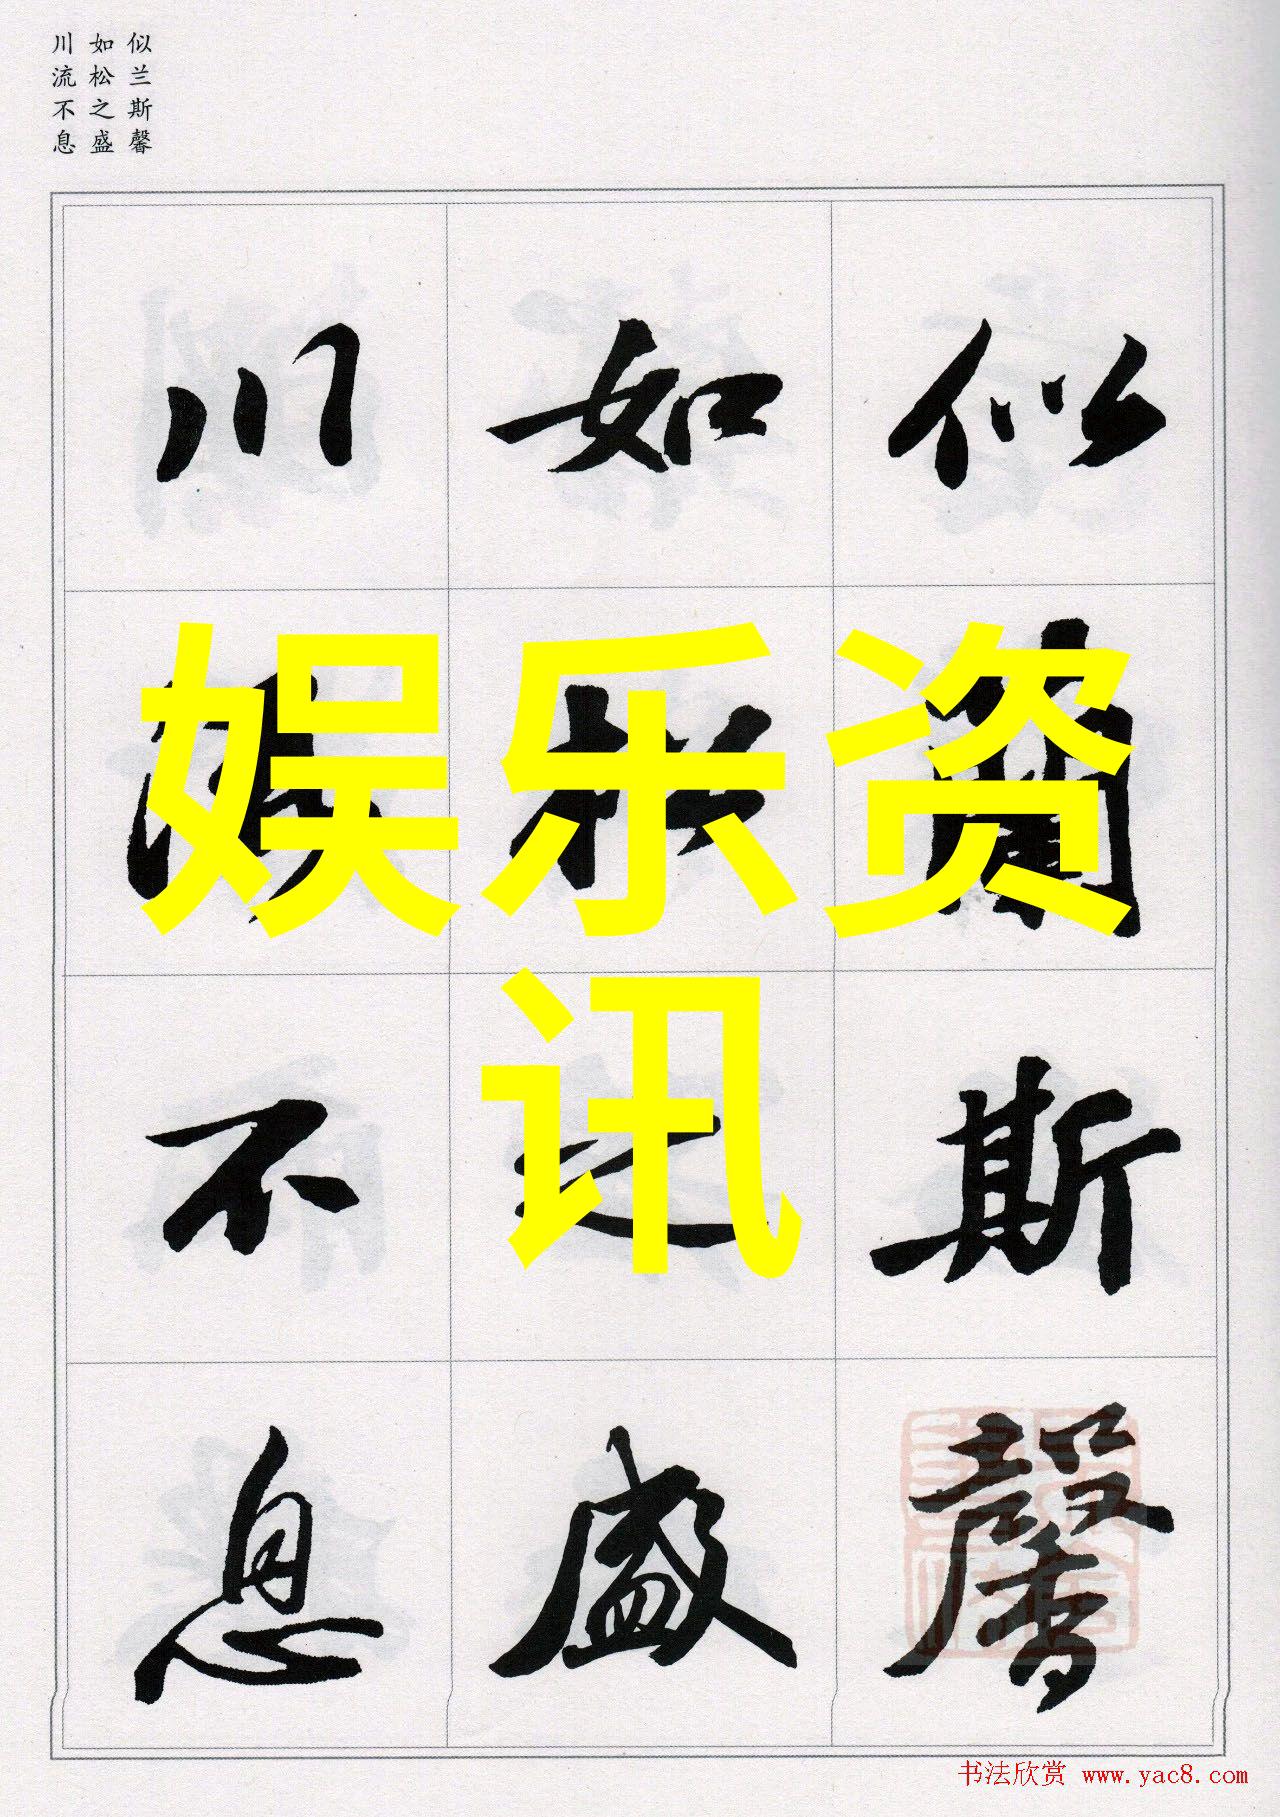 似兰斯馨
如松之盛
川流不息
似蘭斯馨
如松之盛
川流不息
娱乐资
讯
书法欣赏 www.yac8.com